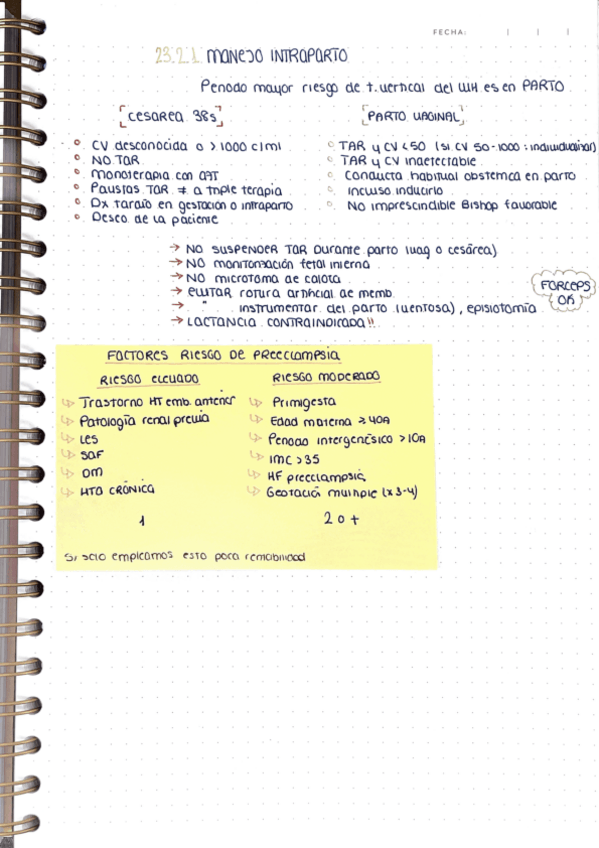 FECHA:
23.2.1 MANEJO INTRAPARTO
Periodo mayor riesgo de t. vertical del VIH es en PARTO
CESAREA 38s
CV desconocida o > 1000 c/ml
NO TAR
Monoterapia con AZT
Pautas TAR ≠ a triple terapia
Dx tardío en gestación o intraparto
Deseo de la paciente
PARTO VAGINAL
TAR y CV < 50 (si CV 50-1000: individualizar)
TAR y CV indetectable
Conducta habitual obstetrica en parto
Incluso inducirlo
No imprescindible Bishop favorable
→ NO SUSPENDER TAR Durante parto (vag o cesárea)
→ NO monitorización fetal interna
→ NO microtoma de calota
→ EVITAR rotura artificial de memb.
→ " instrumentar del parto (ventosa), episiotomía
→ LACTANCIA CONTRAINDICADA!!
FORCEPS OK
FACTORES RIESGO DE PREECLAMPSIA
RIESGO ELEVADO
Trastorno HT emb. anterior
Patología renal previa
LES
SAF
DM
HTA CRÓNICA
1
RIESGO MODERADO
Primigesta
Edad materna ≥ 40A
Periodo intergenésico > 10A
IMC > 35
HF preeclampsia
Gestación multiple (x3-4)
2 o +
Si solo empleamos esto para rentabilidad